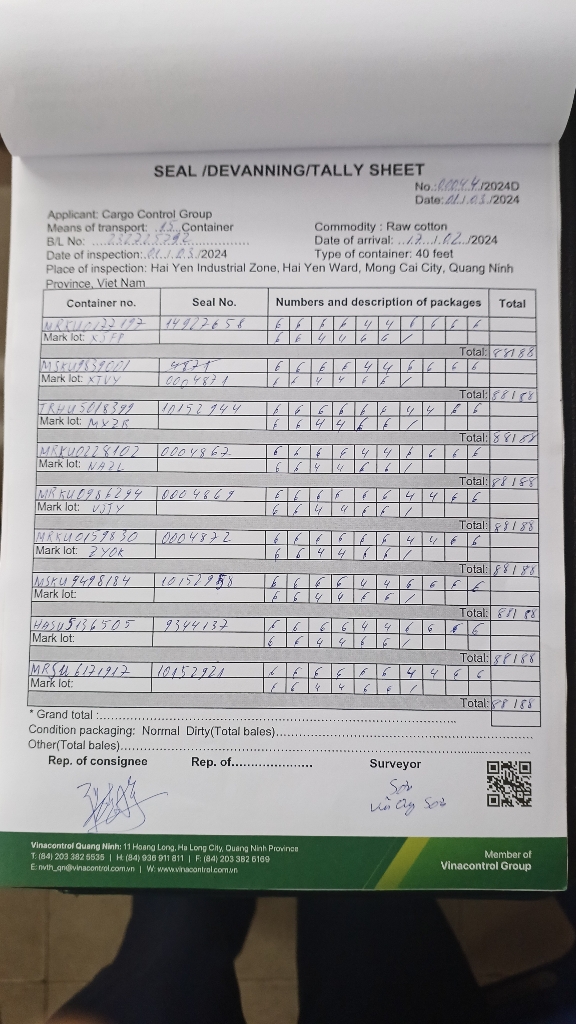 SEAL /DEVANNING/TALLY SHEET
No.:00044/2024D
Date:01/03/2024
Applicant: Cargo Control Group
Means of transport: 15 Container
Commodity : Raw cotton
B/L No: 232725792
Date of arrival: 17/02/2024
Date of inspection: 01/03/2024
Type of container: 40 feet
Place of inspection: Hai Yen Industrial Zone, Hai Yen Ward, Mong Cai City, Quang Ninh
Province, Viet Nam
Container no. Seal No. Numbers and description of packages Total
MRKU0177197 14922658 6 6 6 6 4 4 6 6 6 6
Mark lot: XJFP 6 6 4 4 6 6 /
Total: 88188
MSKU9839001 6 6 6 6 4 4 6 6 6 6
Mark lot: XTVY 0004871 6 6 4 4 6 6 /
Total: 88188
TRHU5018399 10152944 6 6 6 6 6 6 4 4 6 6
Mark lot: MXZR 6 6 4 4 6 6 /
Total: 88188
MRKU0228102 0004867 6 6 6 6 4 4 6 6 6 6
Mark lot: NAZL 6 6 4 4 6 6 /
Total: 88188
MRKU0986294 0004869 6 6 6 6 6 6 4 4 6 6
Mark lot: VJTY 6 6 4 4 6 6 /
Total: 88188
MRKU0159830 0004872 6 6 6 6 6 6 4 4 6 6
Mark lot: ZYOK 6 6 4 4 6 6 /
Total: 88188
MSKU9498184 10152958 6 6 6 6 4 4 6 6 6 6
Mark lot: 6 6 4 4 6 6 /
Total: 88188
HASU5136505 9344137 6 6 6 6 4 4 6 6 6 6
Mark lot: 6 6 4 4 6 6 /
Total: 88188
MRSU6171917 10152921 6 6 6 6 6 6 4 4 6 6
Mark lot: 6 6 4 4 6 6 /
Total: 88188
* Grand total :
Condition packaging: Normal Dirty(Total bales)
Other(Total bales)
Rep. of consignee Rep. of Surveyor
Sơn
Sơn
Vinacontrol Quang Ninh: 11 Hoang Long, Ha Long City, Quang Ninh Province
T: (84) 203 382 5535 | H: (84) 936 911 811 | F: (84) 203 382 6169
E: nvth_qn@vinacontrol.com.vn | W: www.vinacontrol.com.vn
Member of
Vinacontrol Group